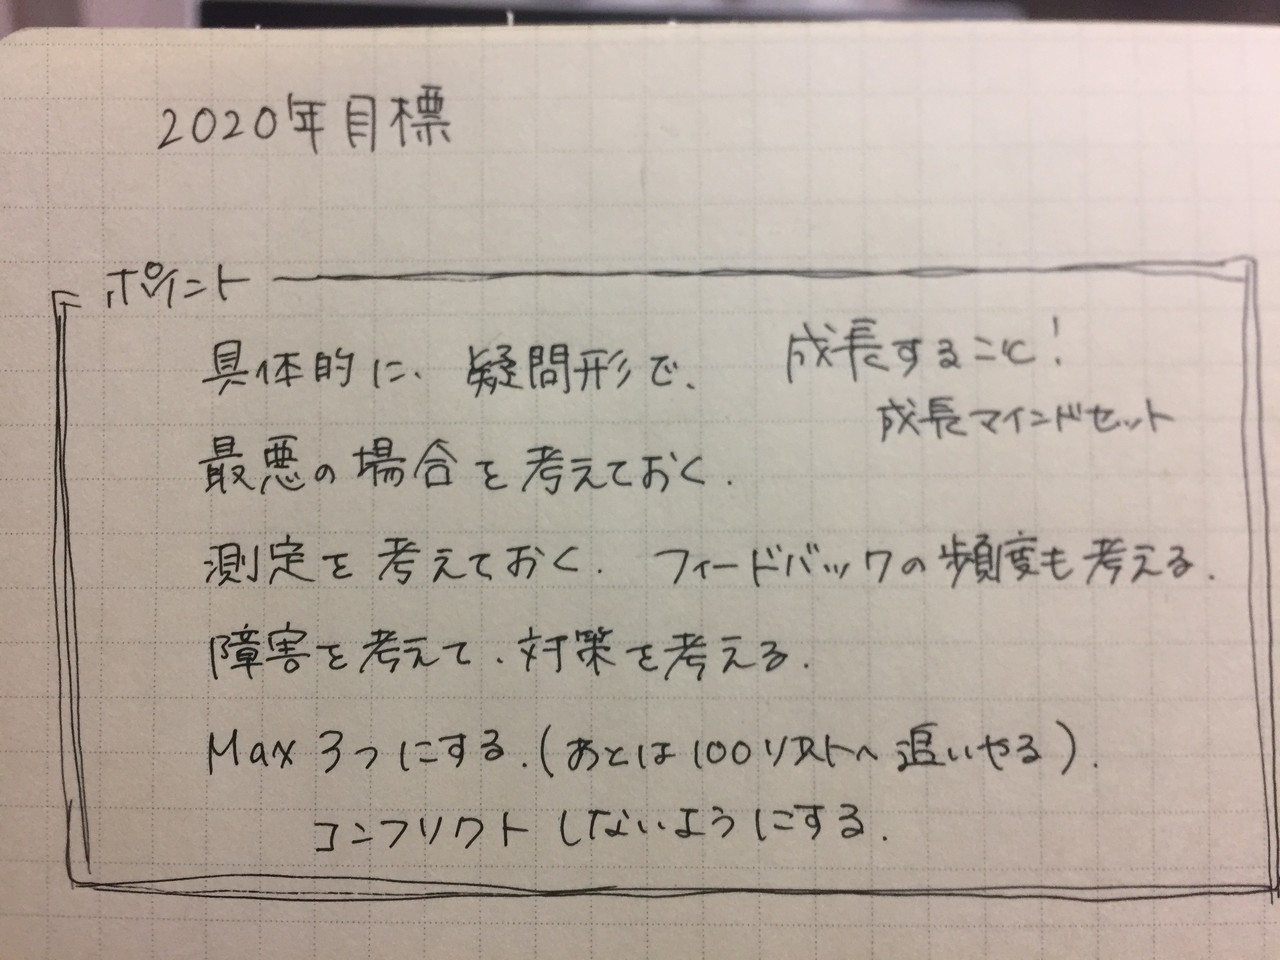 2020年目標
ポイント
具体的に、疑問形で、
成長すること!
成長マインドセット
最悪の場合を考えておく.
測定を考えておく. フィードバックの頻度も考える.
障害を考えて、対策を考える.
Max 3つにする.(あとは100リストへ追いやる).
コンフリクトしないようにする.